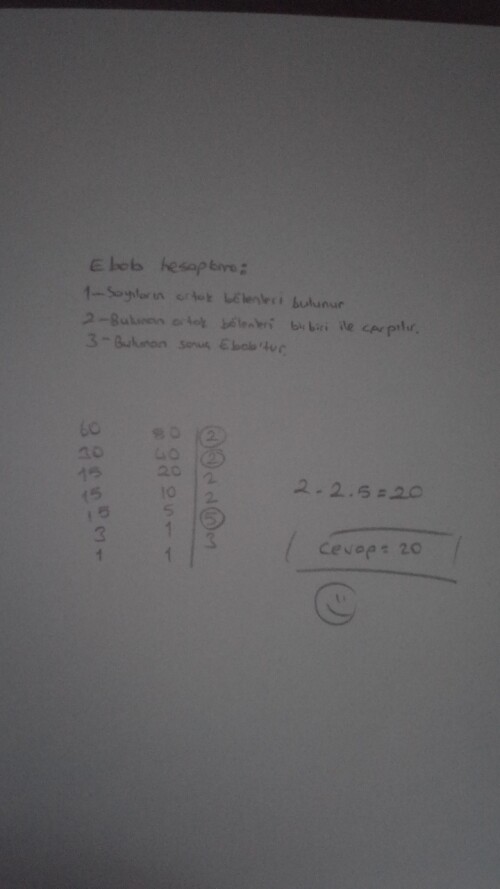 Ebob hesaplama:
1-Sayıların ortak bölenleri bulunur
2-Bulunan ortak bölenleri birbiri ile çarpılır.
3-Bulunan sonuç Ebob'tur.
60 80 2
30 40 2
15 20 2
15 10 2
15 5 5
3 1 3
1 1
2.2.5=20
Cevap=20